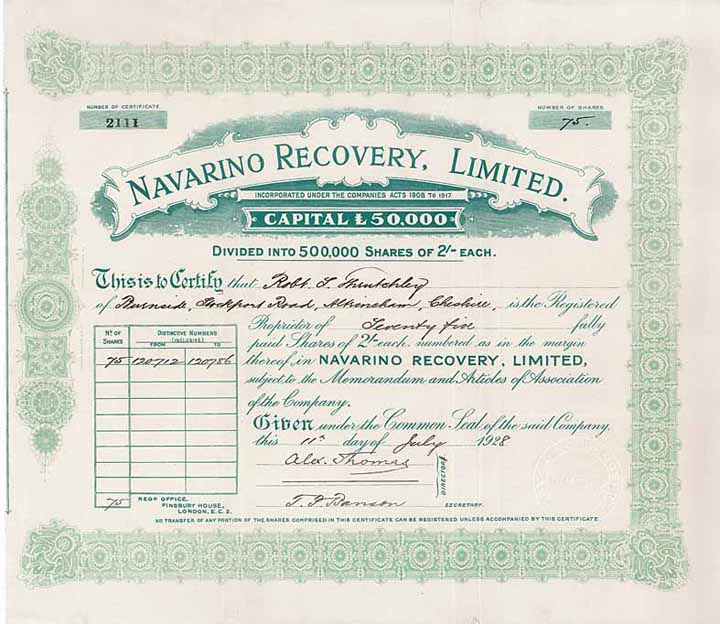 NUMBER OF CERTIFICATE
2111
NUMBER OF SHARES
75.
NAVARINO RECOVERY, LIMITED.
INCORPORATED UNDER THE COMPANIES ACTS 1908 TO 1917.
CAPITAL £50,000
DIVIDED INTO 500,000 SHARES OF 2/- EACH.
This is to Certify that Robt. S.
of Burnside, Stockport Road, Altrincham, Cheshire, is the Registered
Proprietor of Seventy five fully
paid Shares of 2/- each, numbered as in the margin
thereof, in NAVARINO RECOVERY, LIMITED,
subject to the Memorandum and Articles of Association
of the Company.
Given under the Common Seal of the said Company,
this 11th day of July 1928
No OF SHARES
DISTINCTIVE NUMBERS
(INCLUSIVE)
FROM TO
75 120712 120786
75
Alex. Thomas
DIRECTORS
SECRETARY.
REGD OFFICE.
FINSBURY HOUSE,
LONDON, E.C. 2.
NO TRANSFER OF ANY PORTION OF THE SHARES COMPRISED IN THIS CERTIFICATE CAN BE REGISTERED UNLESS ACCOMPANIED BY THIS CERTIFICATE